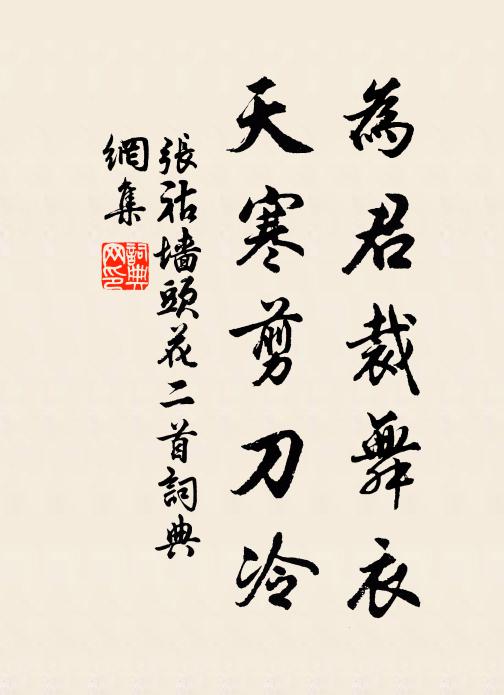 為君裁舞衣
天寒剪刀冷
張祜墻頭花二首詞典
網集
詞典
網印